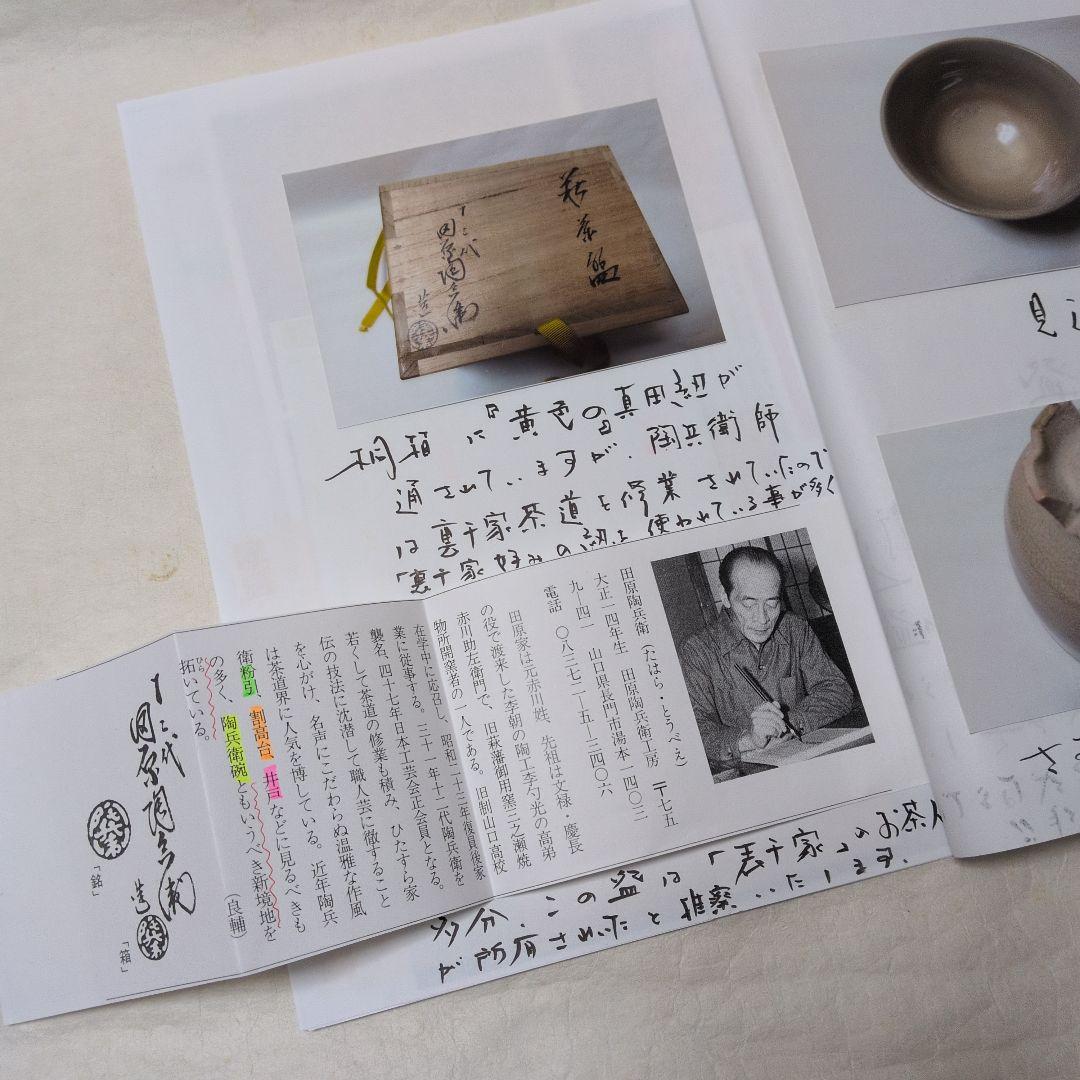 萩茶盌
十二代
田原陶兵衛
造
桐箱に『黄色の』真田紐が
通されていますが、陶兵衛師
は裏千家茶道を修業されていたので
「裏千家好みの紐を使われている事が多く
田原陶兵衛(たはら・とうべえ)
大正一四年生 田原陶兵衛工房 〒七五
九―四一 山口県長門市湯本一四〇三
電話 〇八三七二―五―三四〇六
田原家は元赤川姓、先祖は文禄・慶長
の役で渡来した李朝の陶工李勺光の高弟
赤川助左衛門で、旧萩藩御用窯三之瀬焼
物所開窯者の一人である。旧制山口高校
在学中に応召し、昭和二十三年復員後家
業に従事する。三十一年十二代陶兵衛を
襲名、四十七年日本工芸会正会員となる。
若くして茶道の修業も積み、ひたすら家
伝の技法に沈潜して職人芸に徹すること
を心がけ、名声にこだわらぬ温雅な作風
は茶道界に人気を博している。近年陶兵
衛粉引、割高台、井戸などに見るべきも
の多く、陶兵衛碗ともいうべき新境地を
拓いている。 (良輔)
ひら
十二代
田原陶兵衛
造
「銘」
「箱」
多分、この盌は「表千家」のお茶人
が所有されていたと推察いたします。
見込
さ